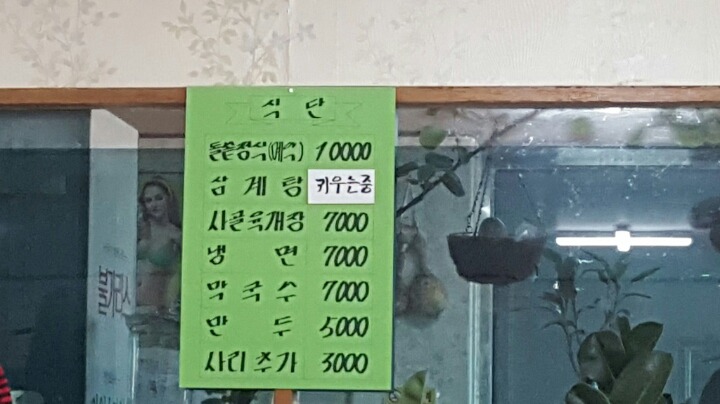 식 단
돌솥정식(예약) 10000
삼 계 탕 키우는중
사골육개장 7000
냉 면 7000
막 국 수 7000
만 두 5000
사리추가 3000